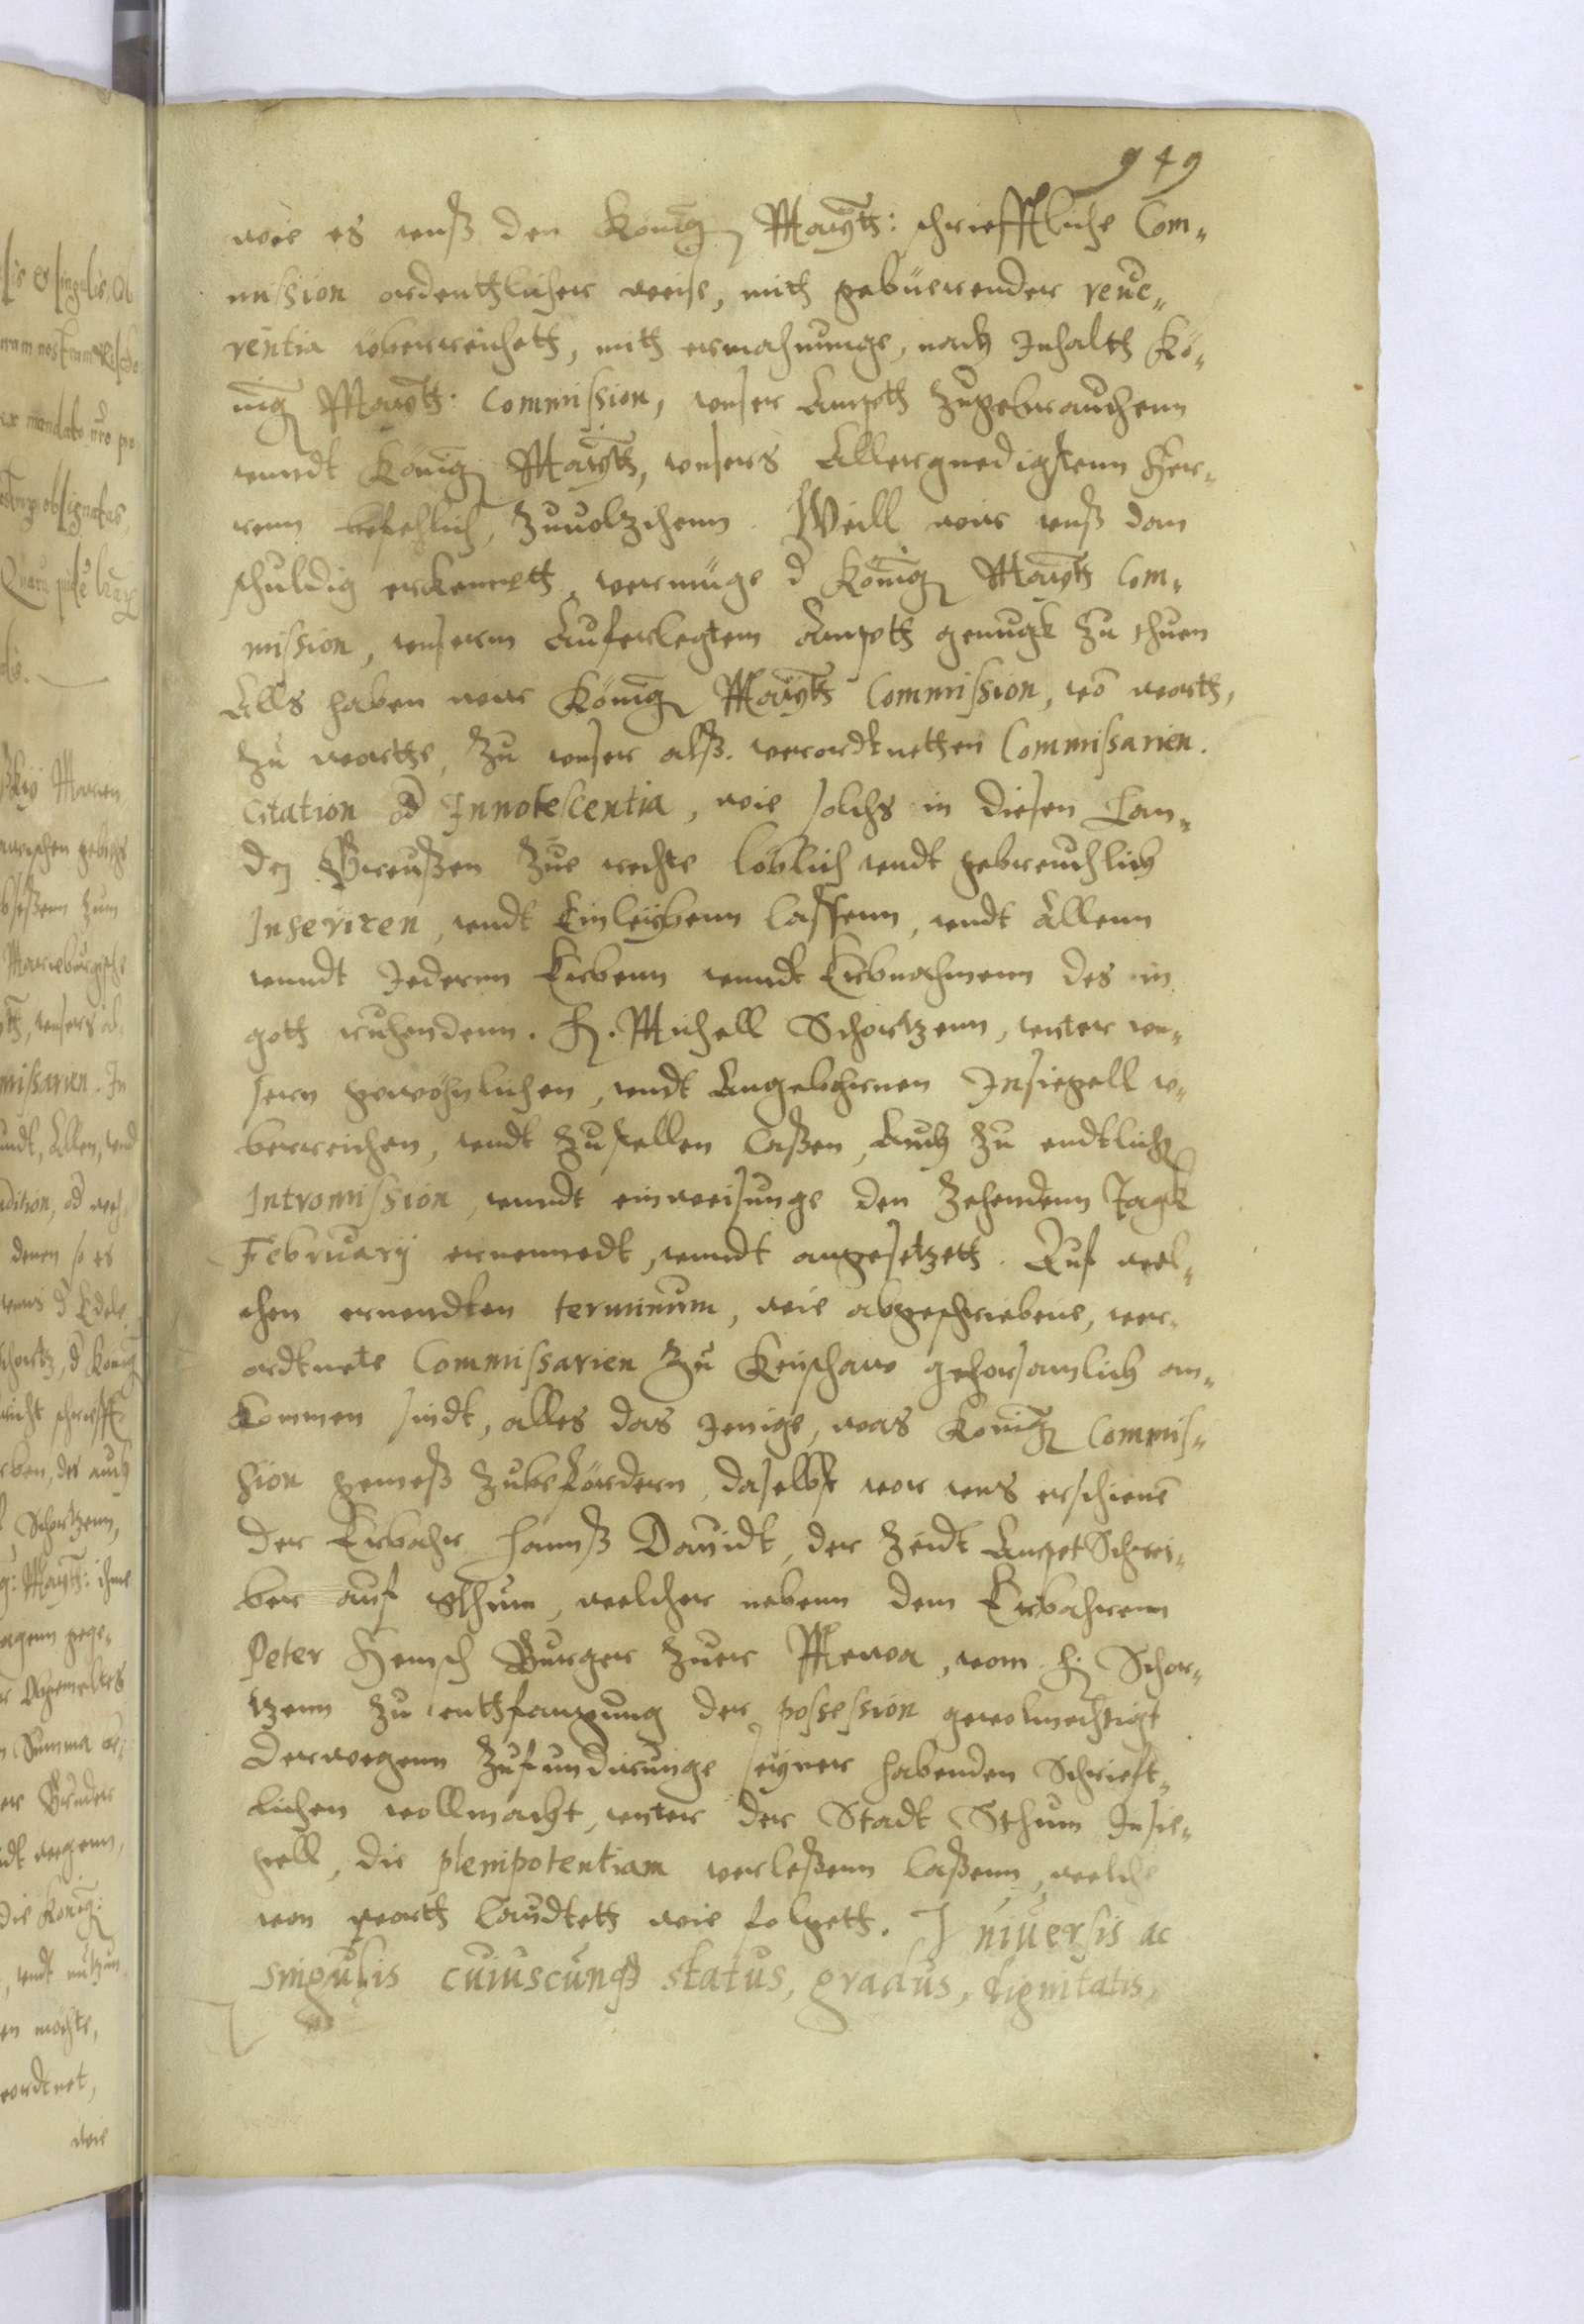 949
wie es unß den König Maÿtt: schriefftliche Com¬
mission ordenthlicher weise, mith gebüerender reue¬
rentia überreicheth, mith ermahnunge, nach Inhalth Kö¬
nig Maÿtt: Commission, unser Ampth zugebrauchenn
unndt König Maÿtt, unsers Allergnedigstenn Her¬
renn befehlich, zuuolzihenn. Weill wir unß dan
schuldig erkenneth, vermüge d König Maÿtt Com¬
mission, unserm Auferlegtem Ampth genugk zu thuen
Alls haben wir König Maÿtt Commission, vō worth,
zu worthe, zu unser alß verordtnethen Commissarien.
Citation od Innotescentia, wie solchs in diesen Lan¬
den Preußen zue rechte löblich undt gebreuchlich
Inseriren, undt Einleÿbenn lassenn, undt Allenn
unndt Jedernn Erbenn unndt Erbnahmenn des in
goth ruhendenn. H. Michell Schortzenn, unter un¬
sern gewöhnlichen, undt Angebohrnen Insiegell ü¬
berreichen, undt zustellen laßen, Auch zu endtlich
Intromission, unndt einweisunge den zehendenn Tagk
Februarÿ ernenndt, unndt angesetzett. Auf wel¬
chen ernendten terminum, wie abgeschriebene, ver¬
ordtnete Commissarien zu Keuschaw gehorsamlich an¬
kommen sindt, alles das jenige, was König Commis¬
sion gemeß zubefördern, daselbst vor uns erschienē
der Erbahr Hannß Dauidt, der zeidt Ampt Schrei¬
ber auf Sthum, welcher nebenn dem Erbahrenn
Peter Hensch Burger zuer Mewa, vom H. Schor¬
tzenn zu enthfangung der possession geuolmechtigt
Derwegenn zufundirunge seÿner habenden Schrieft¬
lichen vollmacht, unter der Stadt Sthum Insie¬
gell, die plenipotentiam verleßenn laßenn, welche
von worth laudteth wie folgeth. Vniuersis ac
singulis cuiuscunq status, gradus, dignitatis,